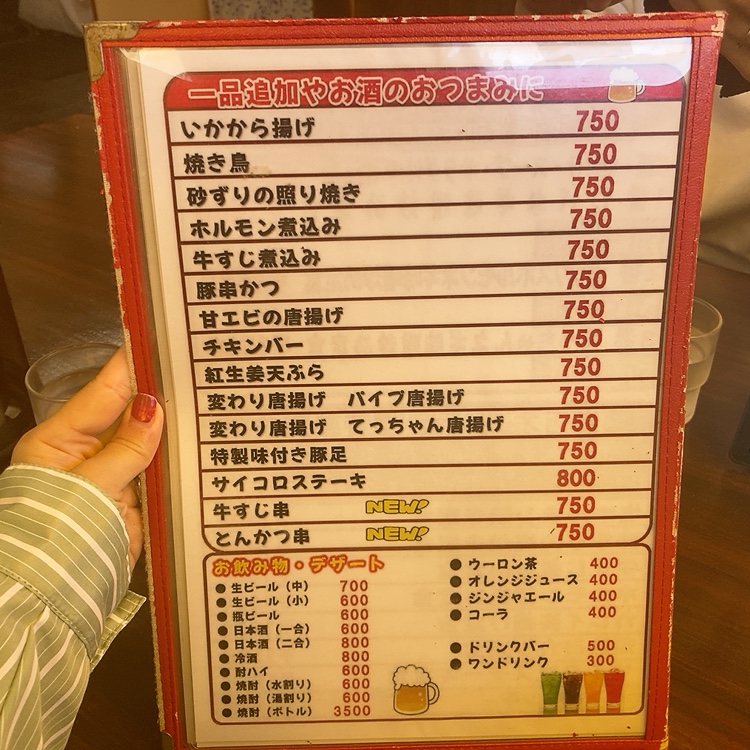 一品追加やお酒のおつまみに
いかから揚げ 750
焼き鳥 750
砂ずりの照り焼き 750
ホルモン煮込み 750
牛すじ煮込み 750
豚串かつ 750
甘エビの唐揚げ 750
チキンバー 750
紅生姜天ぷら 750
変わり唐揚げ パイプ唐揚げ 750
変わり唐揚げ てっちゃん唐揚げ 750
特製味付き豚足 750
サイコロステーキ 800
牛すじ串 NEW! 750
とんかつ串 NEW! 750
お飲み物・デザート
●生ビール（中） 700
●生ビール（小） 600
●瓶ビール 600
●日本酒（一合） 600
●日本酒（二合） 800
●冷酒 800
●酎ハイ 600
●焼酎（水割り） 600
●焼酎（湯割り） 600
●焼酎（ボトル） 3500
●ウーロン茶 400
●オレンジジュース 400
●ジンジャエール 400
●コーラ 400
●ドリンクバー 500
●ワンドリンク 300